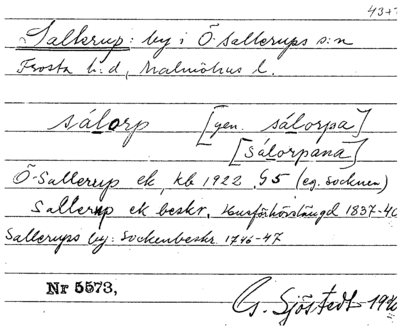 43
Sallerup: by i Ö. Sallerups s:n
Frosta h:d, Malmöhus l.
sálorp [gen. sálorpa]
[sálorpana]
Ö-Sallerup ek, kb 1922 §5 (eg. socknen)
Sallerup ek beskr. Husförhörslängd 1837-40
Sallerups by: Sockenbeskr. 1746-47
Nr 5573,
G. Sjöstedt